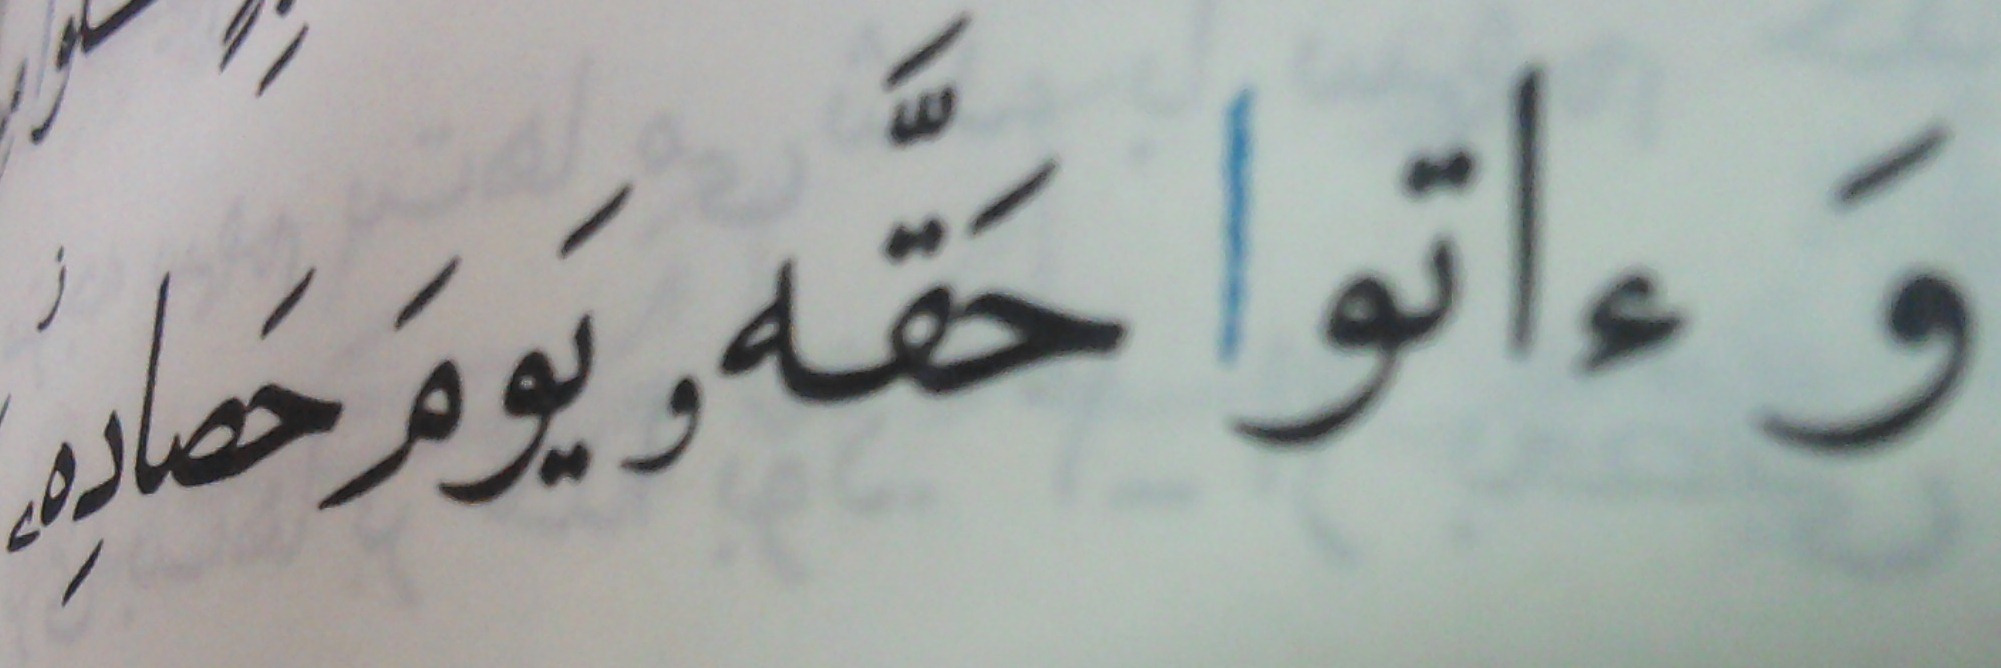 وَ ءاتوا حَقَّه و يَومَ حَصادِهِ